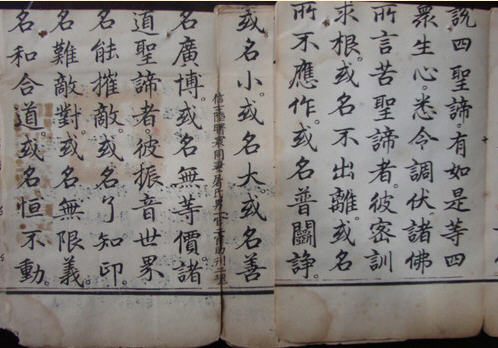 說四聖諦。有如是等四
眾生心。悉令調伏諸佛
所言苦聖諦者。彼密訓
求根。或名不出離。或名
所不應作。或名普鬬諍。
或名小。或名大或名善
信士
名廣博。或名無等價。諸
道聖諦者。彼振音世界
名能摧敵。或名了知印。
名難敵對。或名無限義。
名和合道。或名恒不動。